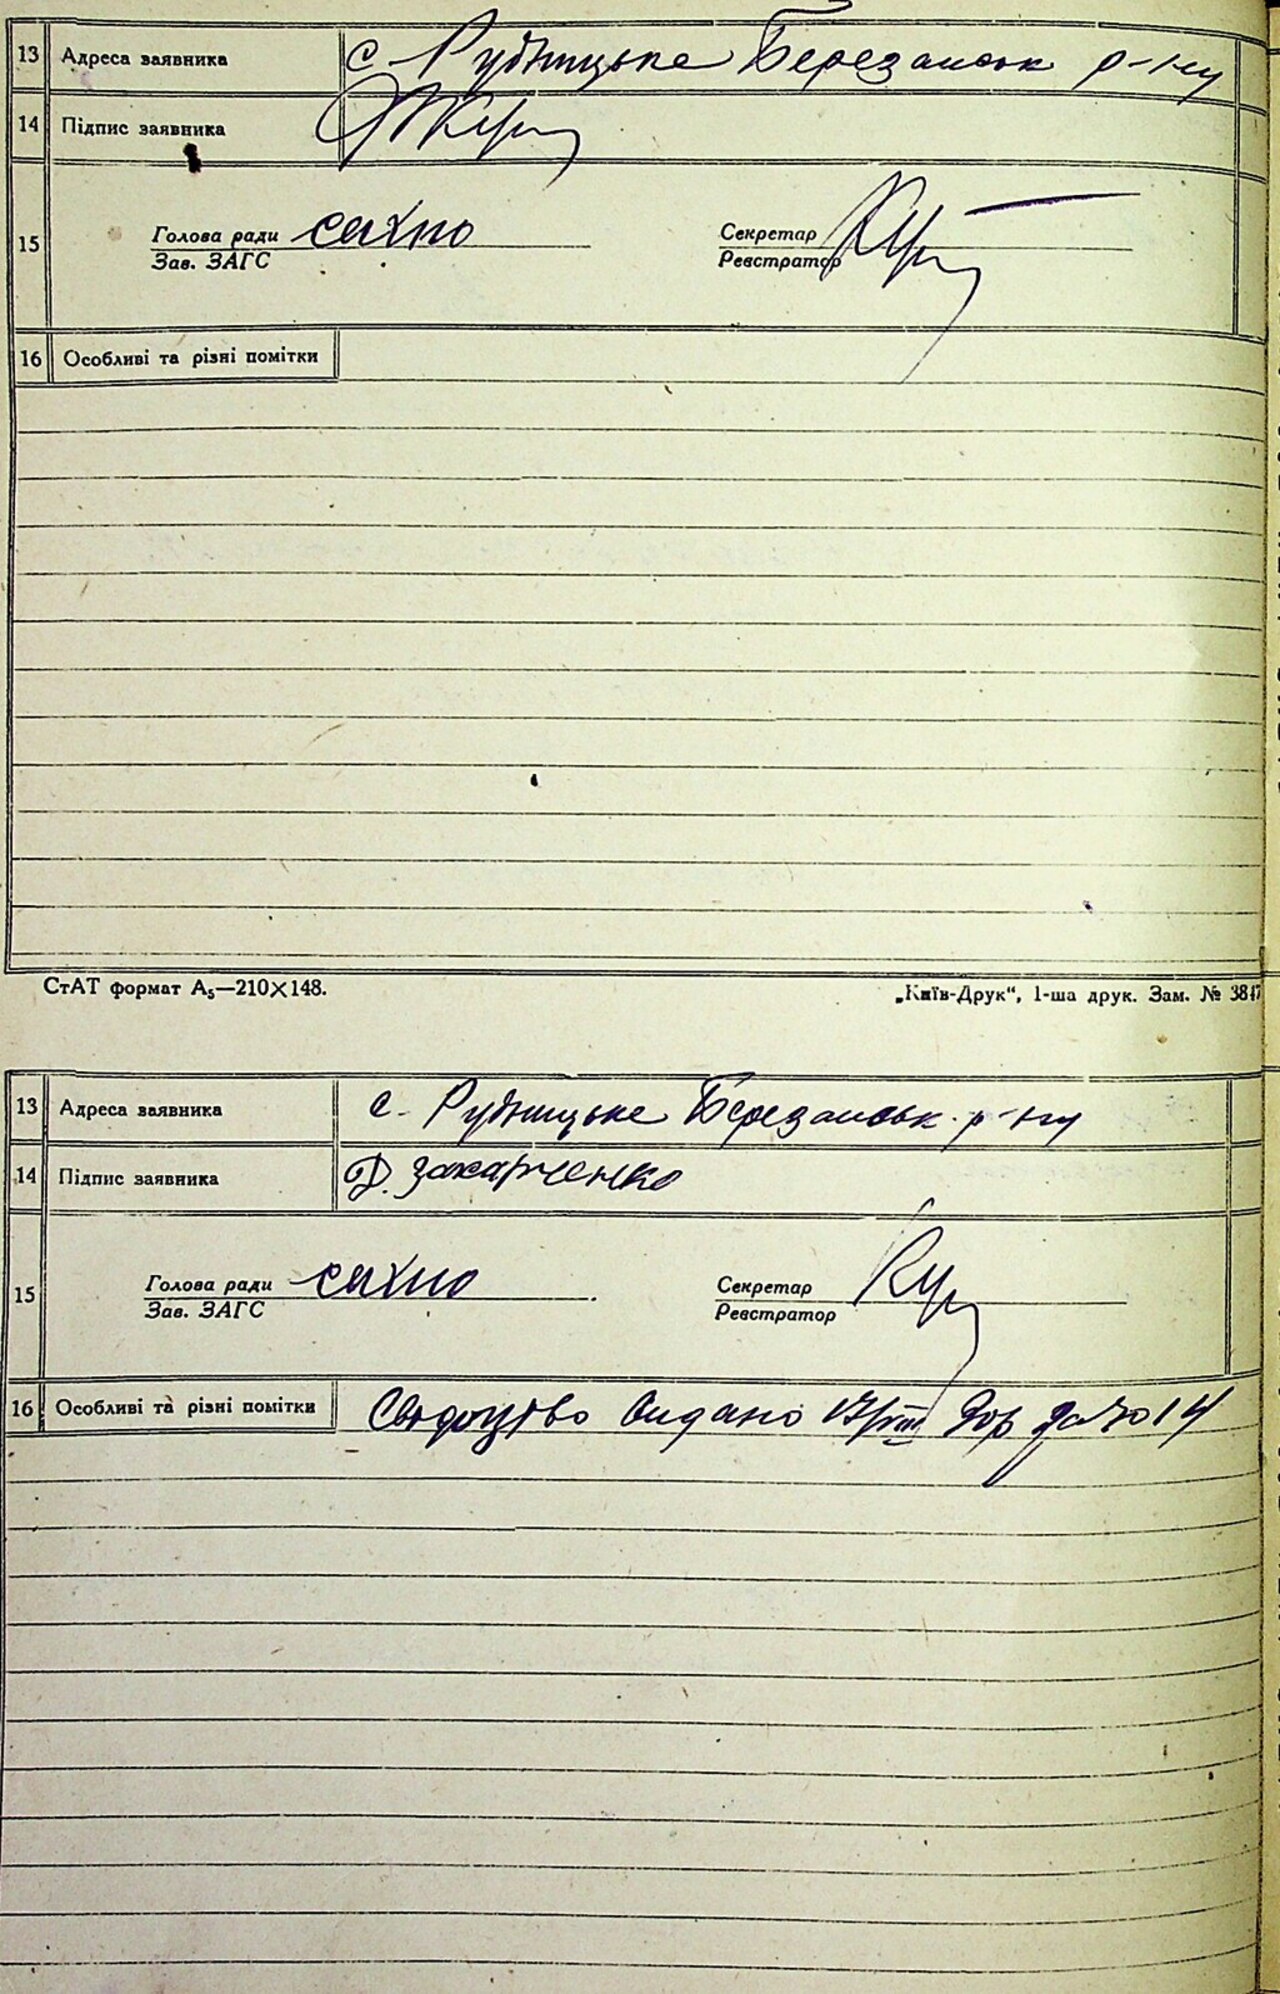 13 Адреса заявника с. Рудницьке Березанськ р-ну
14 Підпис заявника
15 Голова ради Сахно Секретар
Зав. ЗАГС Реєстратор
16 Особливі та різні помітки
СтАТ формат А5—210×148. „Київ-Друк“, 1-ша друк. Зам. № 3847
13 Адреса заявника с. Рудницьке Березанськ. р-ну
14 Підпис заявника Д. Захарченко
15 Голова ради Сахно Секретар
Зав. ЗАГС Реєстратор
16 Особливі та різні помітки Свідоцтво видано